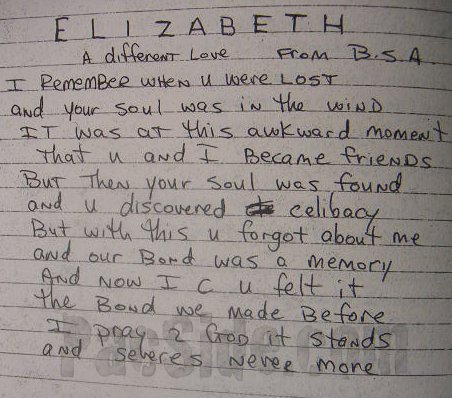 ELIZABETH
A different Love From B.S.A.
I Remember when u were Lost
and your soul was in the wind
IT was at this awkward moment
that u and I Became friends
But then your soul was found
and u discovered celibacy
But with this u forgot about me
and our Bond was a memory
And now I C u felt it
the Bond we made Before
I pray 2 God it stands
and severes never more